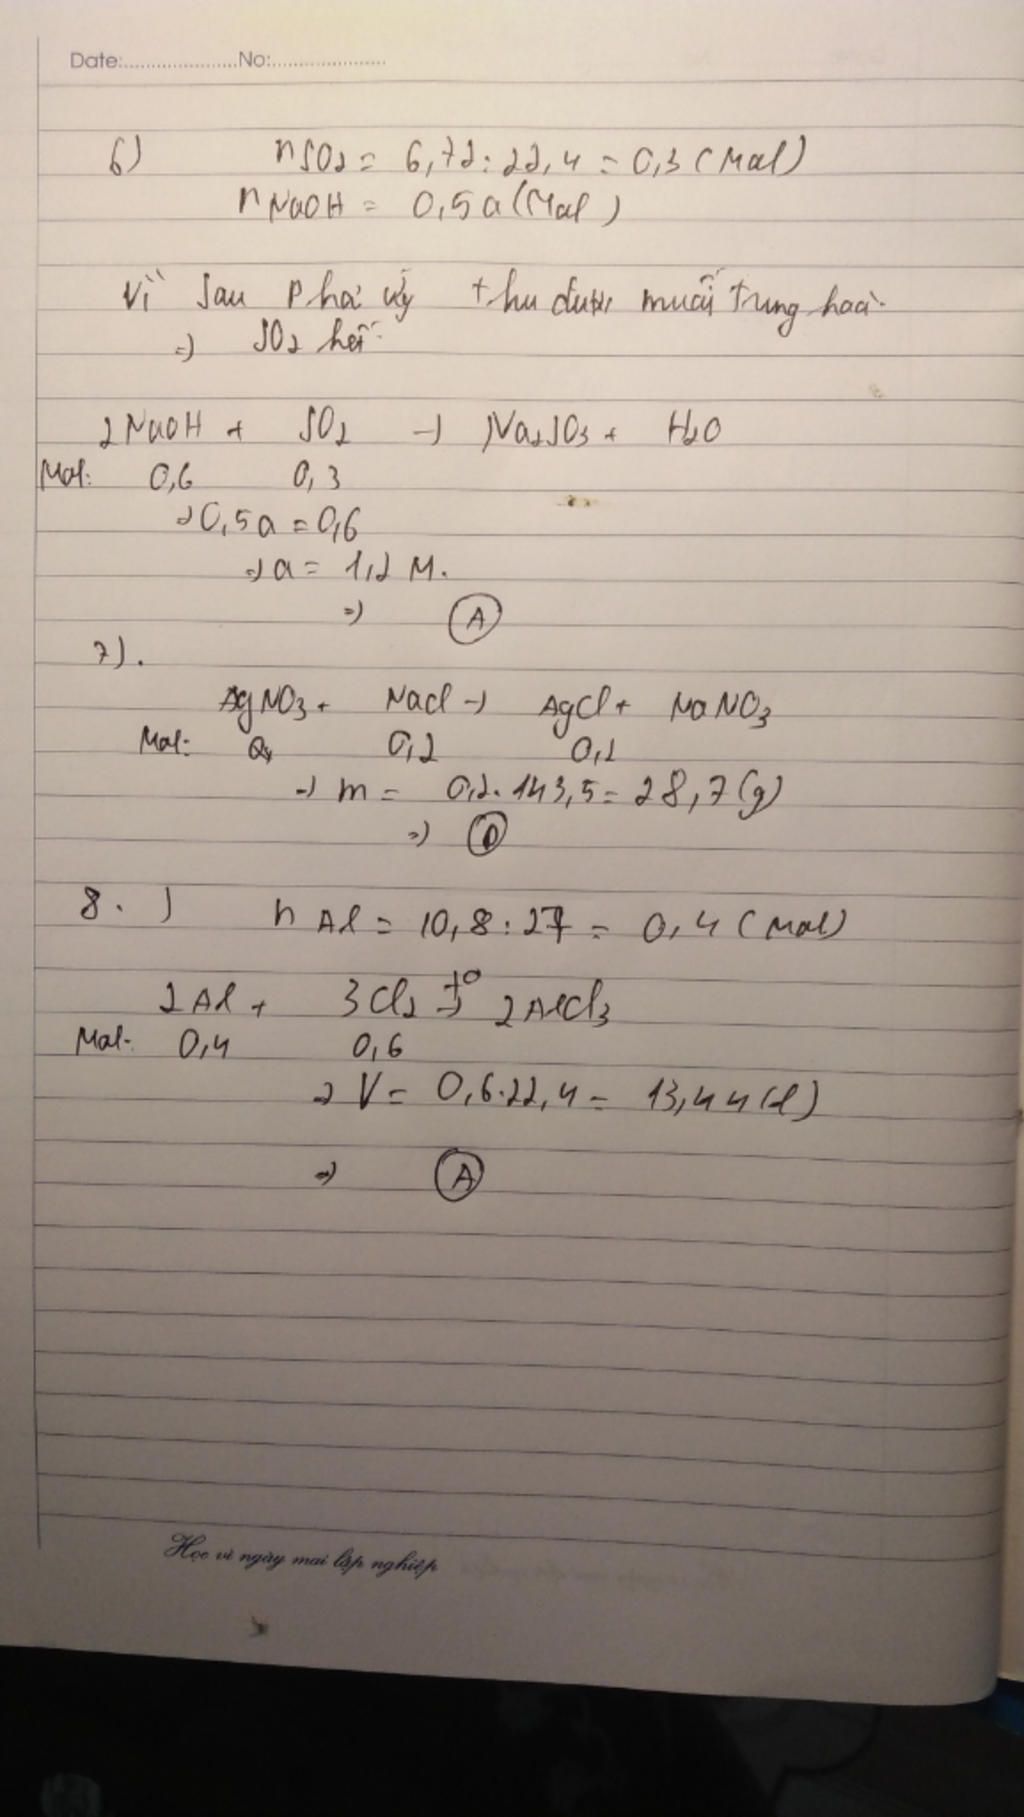 Date:.....................No:.....................
6) nSO2 = 6,72 : 22,4 = 0,3 (mol)
nNaOH = 0,5a (mol)
Vì sau phả ứng thu được muối trung hoà.
=> SO2 hết.
2NaOH + SO2 -> Na2SO3 + H2O
Mol: 0,6 0,3
=> 0,5a = 0,6
=> a = 1,2 M.
=> A
7).
AgNO3 + NaCl -> AgCl + NaNO3
Mol: 0,2 0,2
-> m = 0,2 . 143,5 = 28,7 (g)
=> D
8. ) nAl = 10,8 : 27 = 0,4 (mol)
2Al + 3Cl2 t° -> 2AlCl3
Mol: 0,4 0,6
=> V = 0,6.22,4 = 13,44 (l)
=> A
Học vì ngày mai lập nghiệp